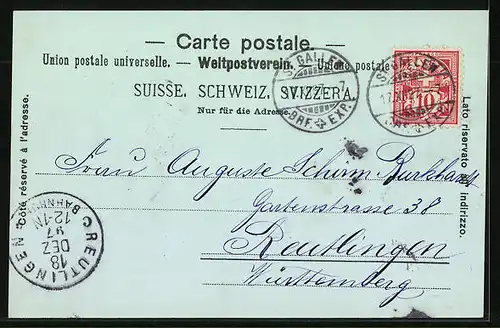 Carte postale.
Union postale universelle. — Weltpostverein. — Unione postale
SUISSE. SCHWEIZ. SVIZZERA.
Nur für die Adresse
Côté réservé à l'adresse.
Lato riservato all' indirizzo.
ST. GALLEN
BRF. EXP.
ST. GALLEN
17. XII
BRF. EXP.
10
Frau Auguste Schirm Burkhardt
Gartenstrasse 38
Reutlingen
Württemberg
REUTLINGEN
18
DEZ
97
12-1N
C BAHNH